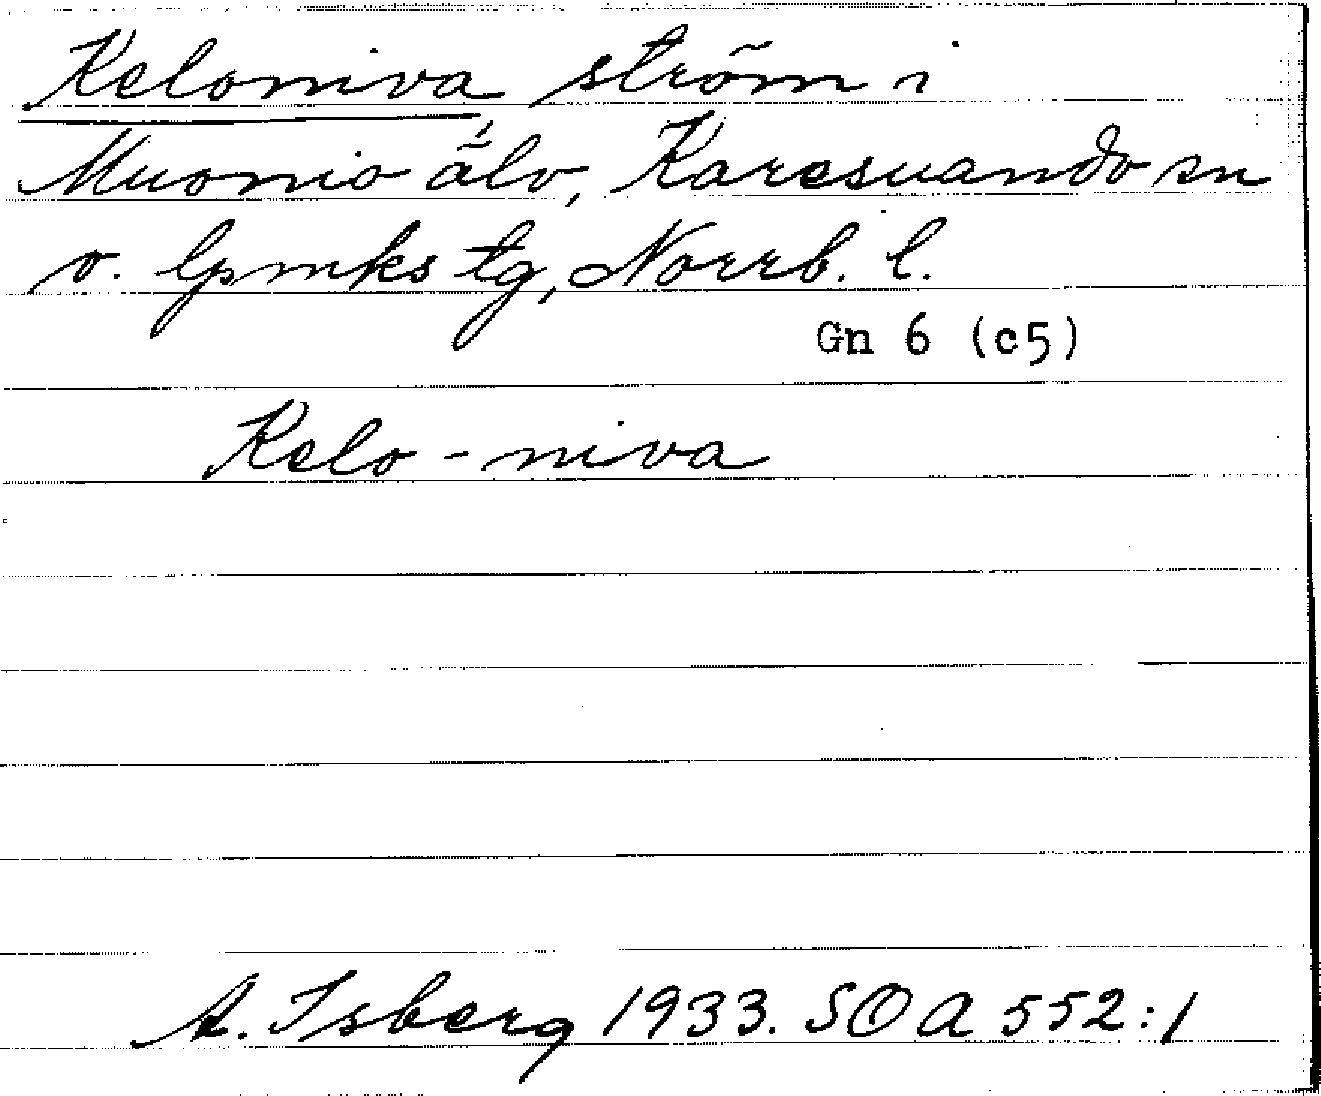 Keloniva, ström i
Muonio älv, Karesuando sn
v. lpmks tg, Norrb. l.
Gn 6 (c5)
Kelo-niva
A. Isberg 1933. SOA 552:1